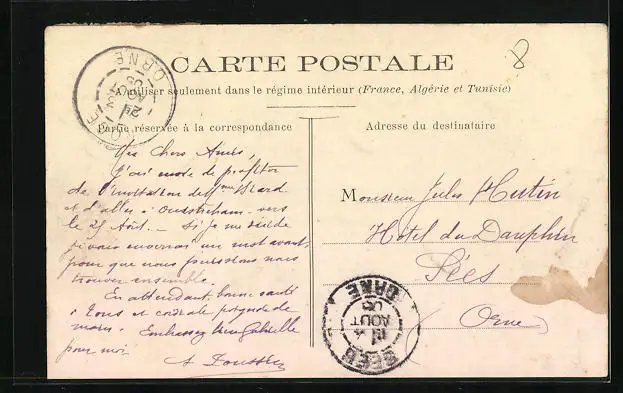 CARTE POSTALE
8
A utiliser seulement dans le régime intérieur (France, Algérie et Tunisie)
Partie réservée à la correspondance
Adresse du destinataire
Mes chers Amis,
J'ai mode de profiter
de l'invitation de Mme Huard
et d'aller à Ouistreham vers
le 25 Août. — Si je me décide
je vous enverrai un mot avant
pour que nous puissions nous
trouver ensemble.
En attendant, bonne santé
à tous et cordiale poignée de
mains. Embrassez bien Gabrielle
pour moi
A
Monsieur Jules Hutin
Hotel du Dauphin
Sées
Orne
ORNE
AOUT
05
SEES
ORNE
4
AOUT
05